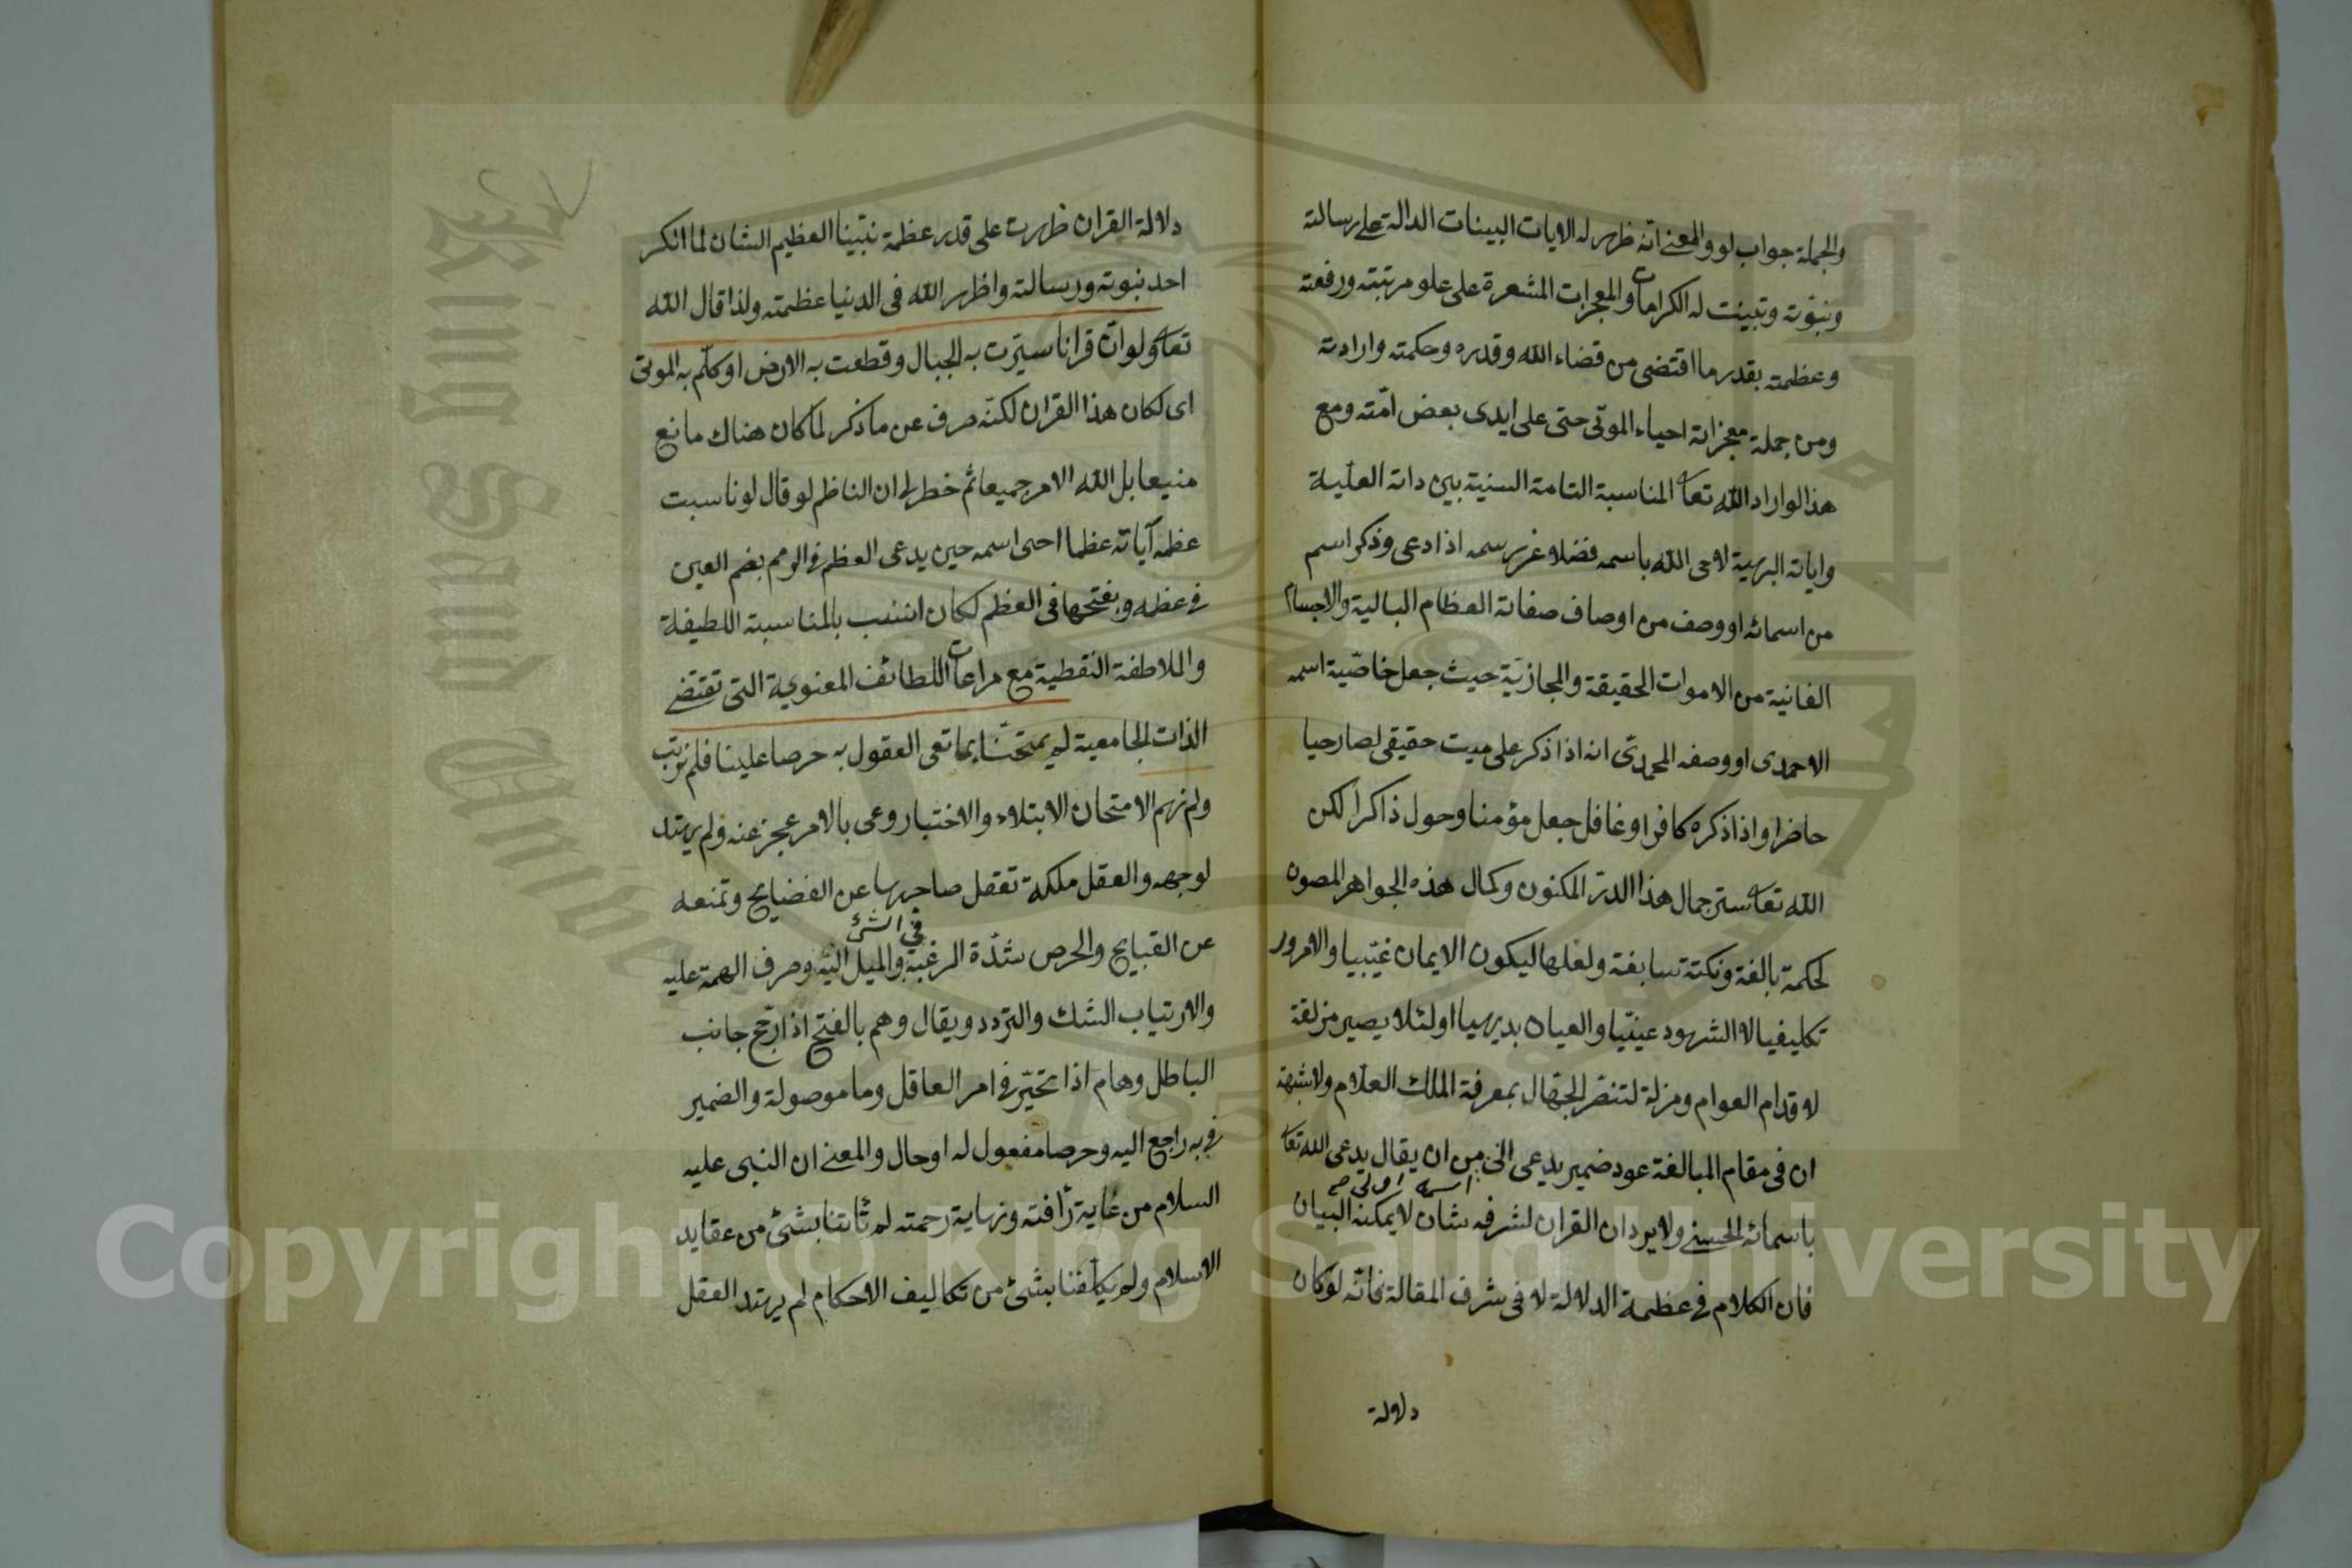 والجملة جواب لو والمعنى انه ظهر له الايات البينات الدالة على رسالته
ونبوّته وتبينت له الكرامات والمعجزات المشعرة على علو مرتبته ورفعته
وعظمته بقدر ما اقتضى من قضاء الله وقدره وحكمته وارادته
ومن جملة معجزاته احياء الموتى حتى على ايدى بعض امّته ومع
هذا لو اراد الله تعا المناسبة التامة السنية بين ذاته العليّة
واياته البهية لاحى الله باسمه فضلا عن رسمه اذا دعى وذكر اسم
من اسمائه او وصف من اوصاف صفاته العظام البالية والاجسام
الفانية من الاموات الحقيقة والمجازيّة حيث جعل خاصّية اسمه
الاحمدى او وصفه المحمدىّ انه اذا ذكر على ميت حقيقى لصار حيا
حاضرا واذا ذكره كافر او غافل جعل مؤمنا وحول ذاكرا لكن
الله تعا ستر جمال هذا الدرّ المكنون وكمال هذه الجواهر المصون
لحكمة بالغة ونكتة سابغة ولعلها ليكون الايمان غيّبيا والامور
تكليفيا لا الشهود عينيّا والعيان بديهيا او لئلا يصير مزلقة
لاقدام العوام ومزلة لتنقر الجهّال بمعرفة الملك العلّام ولا شبهة
ان فى مقام المبالغة عود ضمير يدعى الى من ان يقال يدعى الله تعا
اسمه اولى صح
باسمائه الحسنى ولا يرد ان القران لشرفه شان لا يمكنه البيان
فان الكلام فى عظمة الدلالة لا فى شرف المقالة فانّه لو كان
دلالة
دلالة القران ظهرت على قدر عظمة نبيّنا العظيم الشان لما انكر
احد نبوته ورسالته واظهر الله فى الدنيا عظمته ولذا قال الله
تعا ولو انّ قرانا سيّرت به الجبال وقطعت به الارض او كلّم به الموتى
اى لكان هذا القران لكنّه صرف عن ما ذكر لما كان هناك مانع
منيعا بل الله الامر جميعا ثم خطر لى ان الناظم لو قال لو ناسبت
عظمه آياته عظما احى اسمه حين يدعى العظم فى الرمم بضم العين
فى عظمه وبفتحها فى العظم لكان انسب بالمناسبة اللطيفة
والملاطفة النقطية مع مراعات اللطائف المعنوية التى تقتضى
الذات الجامعية لم يمتحنّا بما تعى العقول به حرصا علينا فلم نرتب
ولم نهم الامتحان الابتلاء والاختبار وعى بالامر عجز عنه ولم يهتد
لوجهه والعقل ملكة تعقل صاحبها عن الفضايح وتمنعه
عن القبايح والحرص شدّة الرغبة فى الشئ والميل اليه وصرف الهمة عليه
والارتياب الشك والتردد ويقال وهم بالفتح اذا رجّح جانب
الباطل وهام اذا تحيّر فى امر العاقل وما موصولة والضمير
فى به راجع اليه وحرصا مفعول له او حال والمعنى ان النبى عليه
السلام من غاية رأفته ونهاية رحمته لم ثابتنا بشئ من عقايد
الاسلام ولم يكلّفنا بشئ من تكاليف الاحكام لم يهتد العقل
Copyright © King Saud University